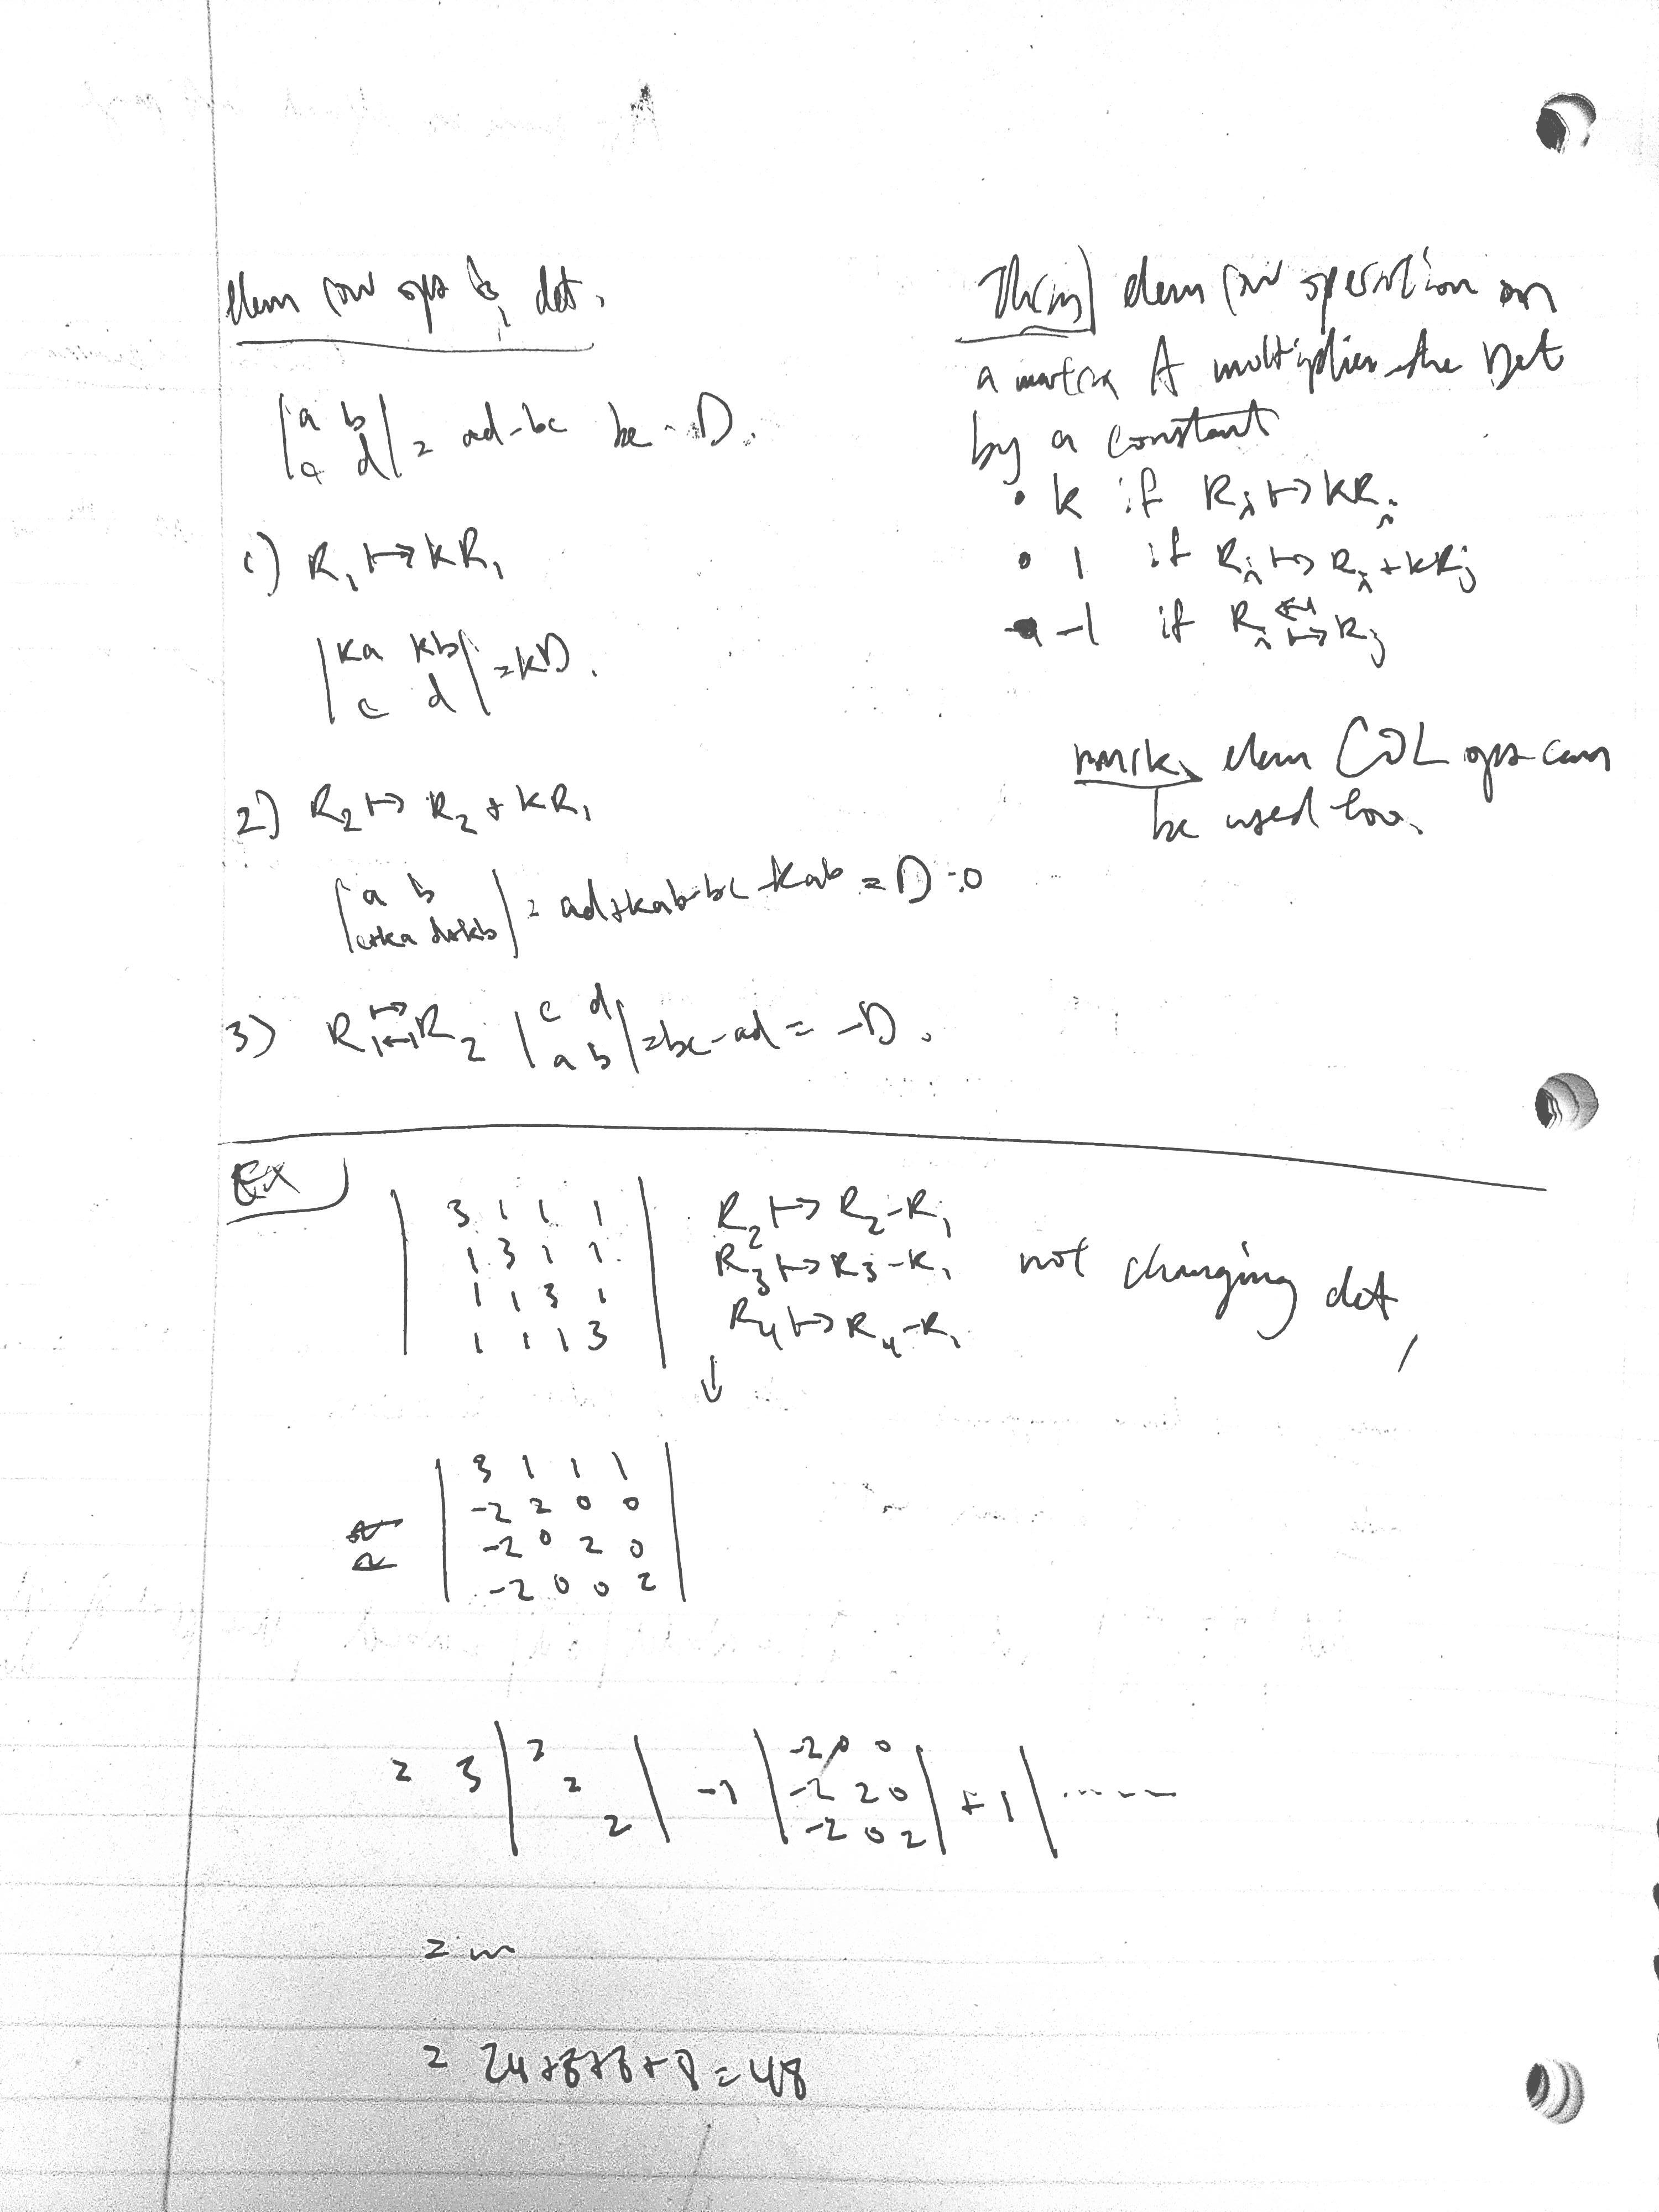 elem row ops & det.
|a b|
|c d| = ad-bc be D.
1) R₁ ↦ kR₁
|ka kb|
|c d| = kD.
2) R₂ ↦ R₂ + kR₁
|a b|
|c+ka d+kb| = ad+kab-bc-kab = D
3) R₁ ⇄ R₂ |c d|
|a b| = bc-ad = -D.
Thm) elem row operation on
a matrix A multiplies the Det
by a constant
• k if Rᵢ ↦ kRᵢ
• 1 if Rᵢ ↦ Rᵢ+kRⱼ
• -1 if Rᵢ ⇄ Rⱼ
elem COL ops can
be used too.
EX
|3 1 1 1| R₂ ↦ R₂-R₁
|1 3 1 1| R₃ ↦ R₃-R₁ not changing det,
|1 1 3 1| R₄ ↦ R₄-R₁
|1 1 1 3| ↓
|3 1 1 1|
|-2 2 0 0|
|-2 0 2 0|
|-2 0 0 2|
= 3 |2 | -1 |-2 0 0| +1 | ......
| 2 | |-2 2 0|
| 2| |-2 0 2|
=
= 24+8+8+8 = 48